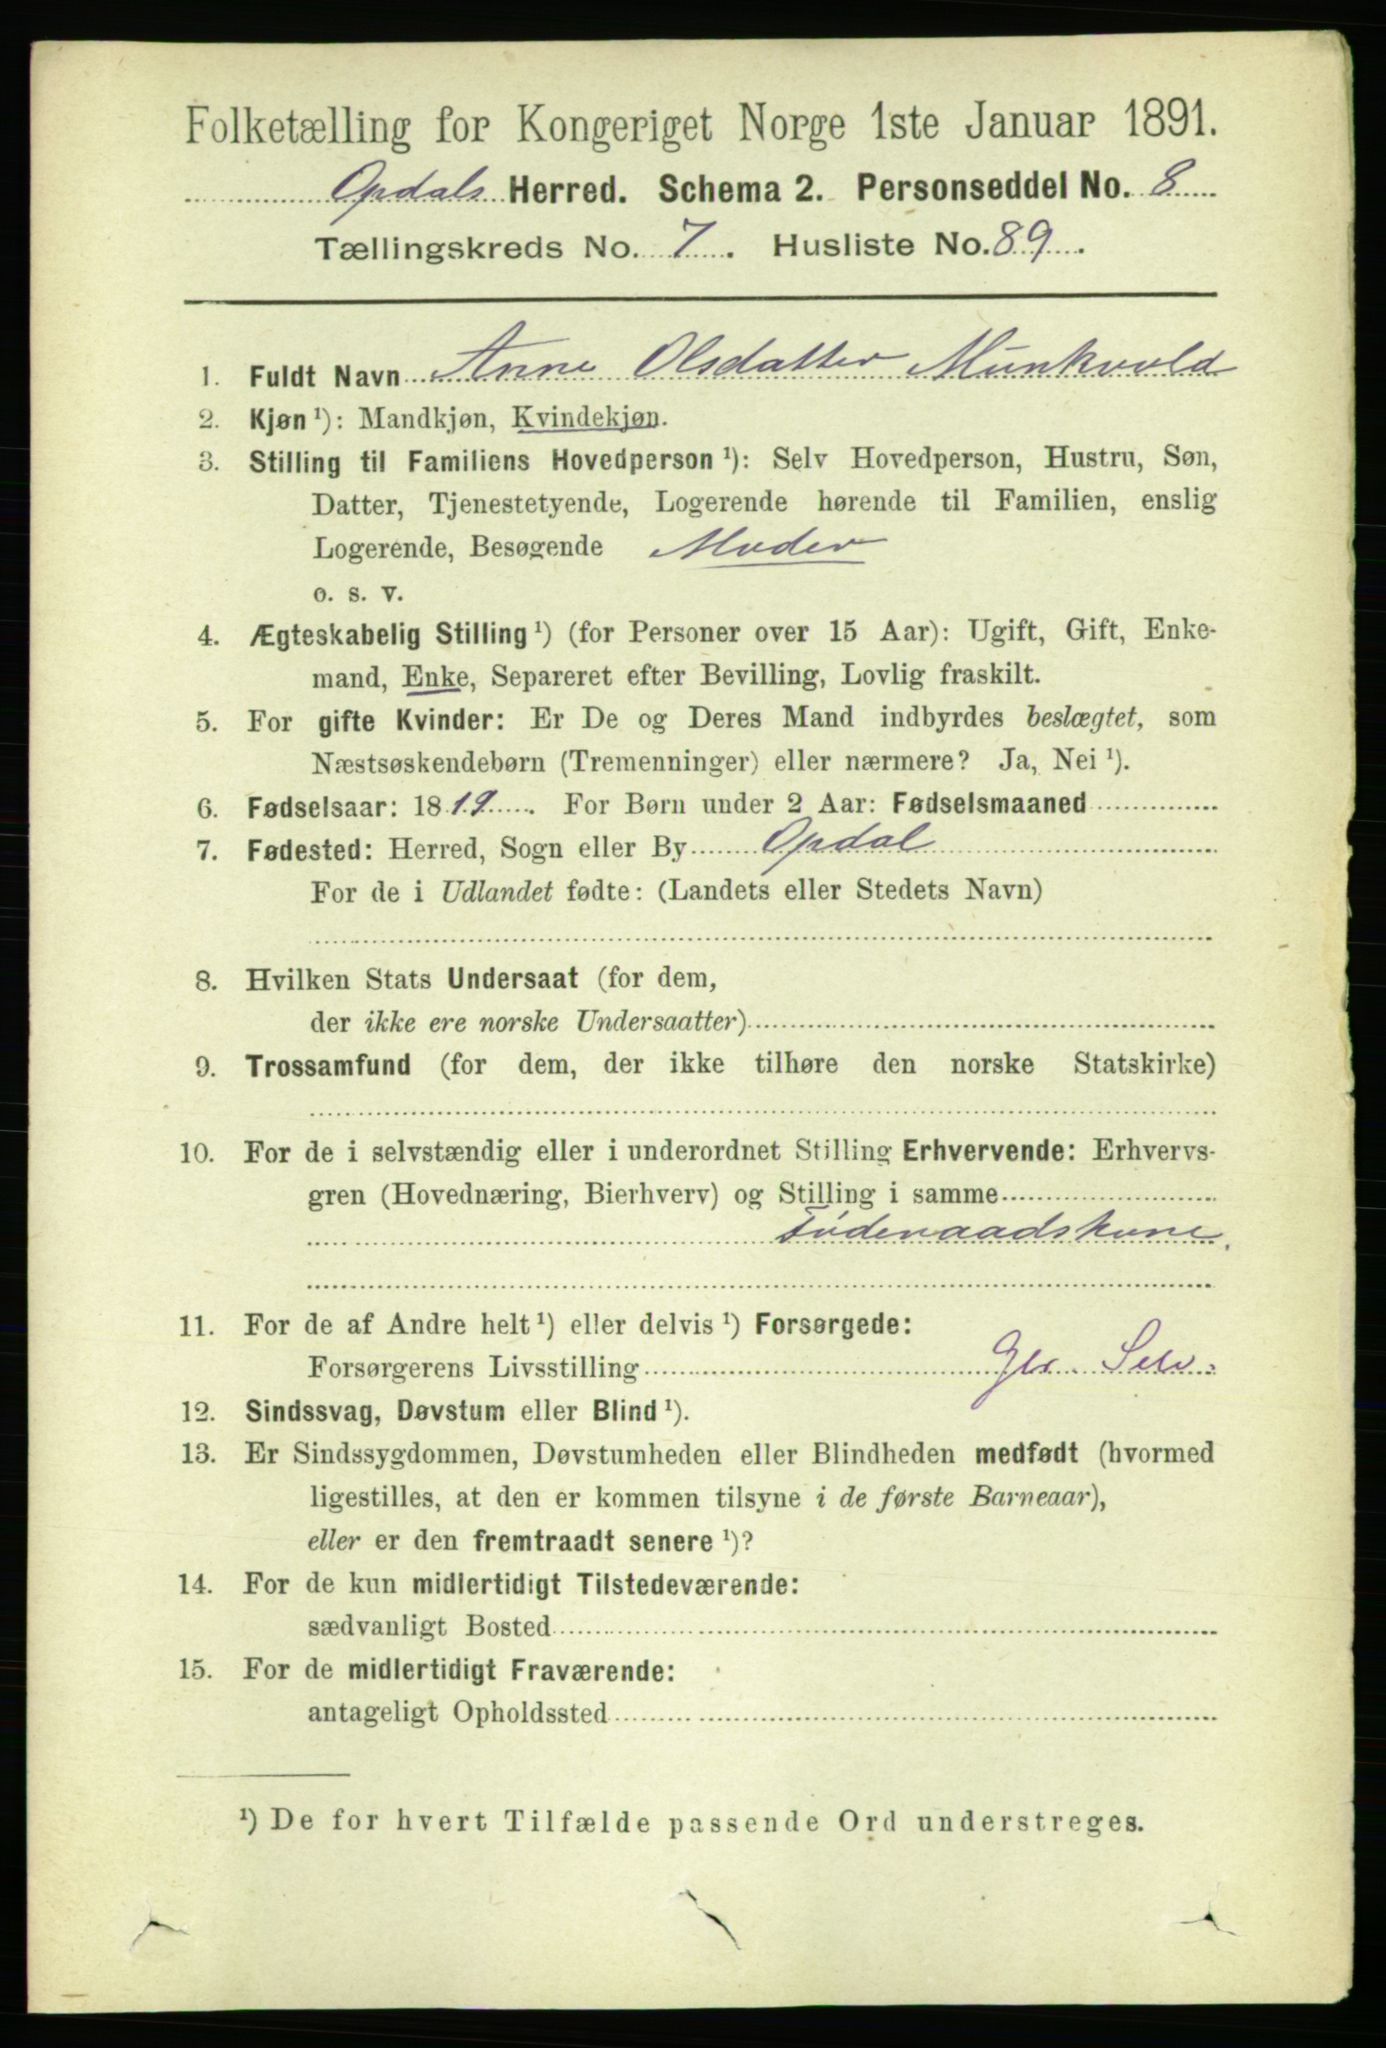 Folketælling for Kongeriget Norge 1ste Januar 1891.
Opdals Herred. Schema 2. Personseddel No. 8
Tællingskreds No. 7. Husliste No. 89.
1. Fuldt Navn Anne Olsdatter Munkvold
2. Kjøn ¹): Mandkjøn, Kvindekjøn.
3. Stilling til Familiens Hovedperson ¹): Selv Hovedperson, Hustru, Søn,
Datter, Tjenestetyende, Logerende hørende til Familien, enslig
Logerende, Besøgende Moder
o. s. v.
4. Ægteskabelig Stilling ¹) (for Personer over 15 Aar): Ugift, Gift, Enke-
mand, Enke, Separeret efter Bevilling, Lovlig fraskilt.
5. For gifte Kvinder: Er De og Deres Mand indbyrdes beslægtet, som
Næstsøskendebørn (Tremenninger) eller nærmere? Ja, Nei ¹).
6. Fødselsaar: 1819. For Børn under 2 Aar: Fødselsmaaned
7. Fødested: Herred, Sogn eller By Opdal
For de i Udlandet fødte: (Landets eller Stedets Navn)
8. Hvilken Stats Undersaat (for dem,
der ikke ere norske Undersaatter)
9. Trossamfund (for dem, der ikke tilhøre den norske Statskirke)
10. For de i selvstændig eller i underordnet Stilling Erhvervende: Erhvervs-
gren (Hovednæring, Bierhverv) og Stilling i samme
Føderaadskone.
11. For de af Andre helt ¹) eller delvis ¹) Forsørgede:
Forsørgerens Livsstilling Gbr. Selv.
12. Sindssvag, Døvstum eller Blind ¹).
13. Er Sindssygdommen, Døvstumheden eller Blindheden medfødt (hvormed
ligestilles, at den er kommen tilsyne i de første Barneaar),
eller er den fremtraadt senere ¹)?
14. For de kun midlertidigt Tilstedeværende:
sædvanligt Bosted
15. For de midlertidigt Fraværende:
antageligt Opholdssted
¹) De for hvert Tilfælde passende Ord understreges.